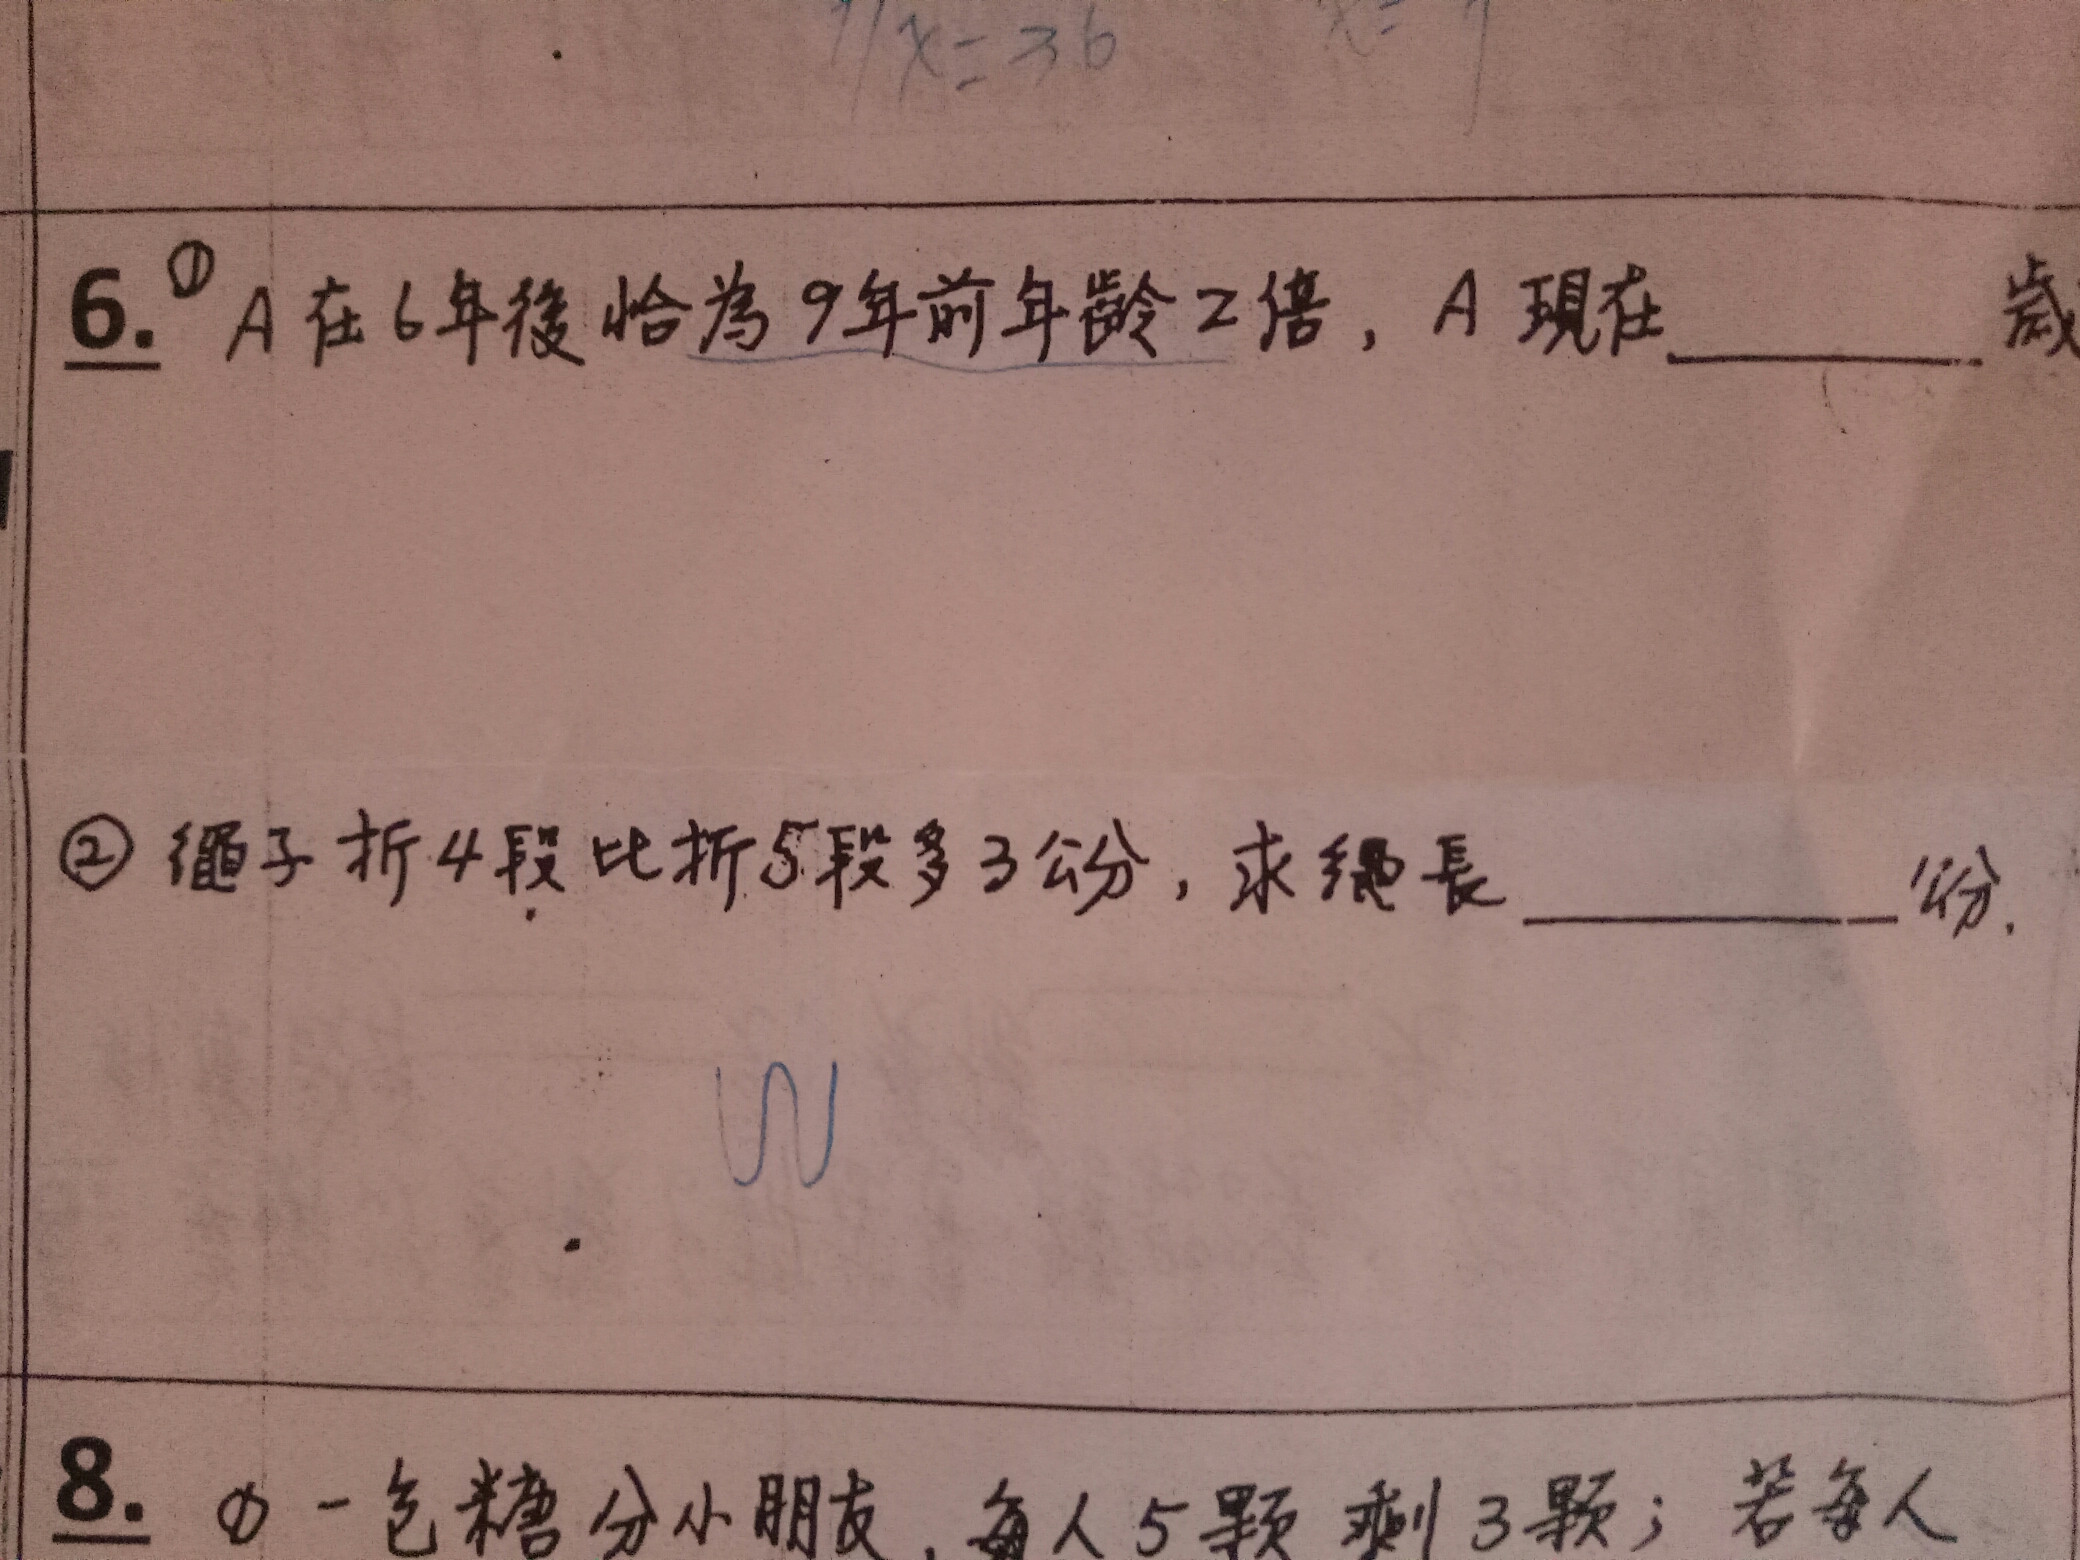 x=36 x=
6. ① A在6年後恰為9年前年齡2倍，A現在______歲
② 繩子折4段比折5段多3公分，求繩長______公分.
8. ① 一包糖分小朋友，每人5顆剩3顆；若每人